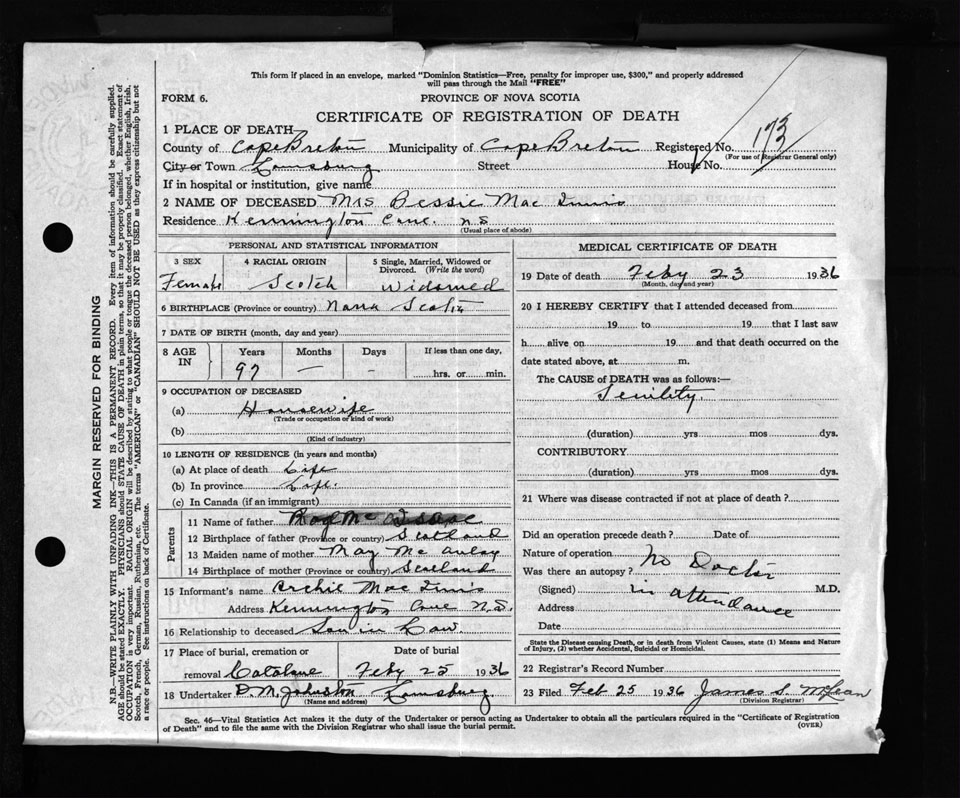 This form if placed in an envelope, marked "Dominion Statistics—Free, penalty for improper use, $300," and properly addressed
will pass through the Mail "FREE"
FORM 6.
PROVINCE OF NOVA SCOTIA
CERTIFICATE OF REGISTRATION OF DEATH
173
1 PLACE OF DEATH
County of Cape Breton Municipality of Cape Breton Registered No.
(For use of Registrar General only)
City or Town Louisburg Street House No.
If in hospital or institution, give name
2 NAME OF DECEASED Mrs Bessie Mac Innis
Residence Kennington Cove. N.S
(Usual place of abode)
PERSONAL AND STATISTICAL INFORMATION
3 SEX 4 RACIAL ORIGIN 5 Single, Married, Widowed or
Divorced. (Write the word)
Female Scotch Widowed
6 BIRTHPLACE (Province or country) Nova Scotia
7 DATE OF BIRTH (month, day and year)
8 AGE IN Years Months Days If less than one day,
97 — - hrs. or min.
9 OCCUPATION OF DECEASED
(a) Housewife
(Trade or occupation or kind of work)
(b)
(Kind of industry)
10 LENGTH OF RESIDENCE (in years and months)
(a) At place of death Life
(b) In province Life.
(c) In Canada (if an immigrant)
Parents
11 Name of father
12 Birthplace of father (Province or country) Scotland
13 Maiden name of mother May Mc Aulay
14 Birthplace of mother (Province or country) Scotland
15 Informant's name Archie Mac Innis
Address Kennington Cove N.S.
16 Relationship to deceased Son in Law
17 Place of burial, cremation or Date of burial
removal Catalone Feby 25 1936
18 Undertaker D. M. Johnston Louisburg
(Name and address)
MEDICAL CERTIFICATE OF DEATH
19 Date of death Feby 23 1936
(Month, day and year)
20 I HEREBY CERTIFY that I attended deceased from
19 to 19 that I last saw
h alive on 19 and that death occurred on the
date stated above, at m.
The CAUSE of DEATH was as follows:—
Senility.
(duration) yrs mos dys.
CONTRIBUTORY
(duration) yrs mos dys.
21 Where was disease contracted if not at place of death ?
Did an operation precede death ? Date of
Nature of operation
Was there an autopsy ? No Doctor
(Signed) in attendance M.D.
Address
Date
State the Disease causing Death, or in death from Violent Causes, state (1) Means and Nature
of Injury, (2) whether Accidental, Suicidal or Homicidal.
22 Registrar's Record Number
23 Filed Feb 25 1936 James S. McLean
(Division Registrar)
Sec. 46—Vital Statistics Act makes it the duty of the Undertaker or person acting as Undertaker to obtain all the particulars required in the "Certificate of Registration
of Death" and to file the same with the Division Registrar who shall issue the burial permit.
(OVER)
MARGIN RESERVED FOR BINDING
N.B.—WRITE PLAINLY WITH UNFADING INK—THIS IS A PERMANENT RECORD. Every item of information should be carefully supplied.
AGE should be stated EXACTLY. PHYSICIANS should STATE CAUSE OF DEATH in plain terms, so that it may be properly classified. Exact statement of
OCCUPATION is very important. RACIAL ORIGIN will be described by stating to what people or tongue the deceased person belonged, whether English, Irish,
Scotch, French, German, Russian, Ruthenian, etc. The terms "AMERICAN" or "CANADIAN" SHOULD NOT BE USED as they express citizenship but not
a race or people. See instructions on back of Certificate.